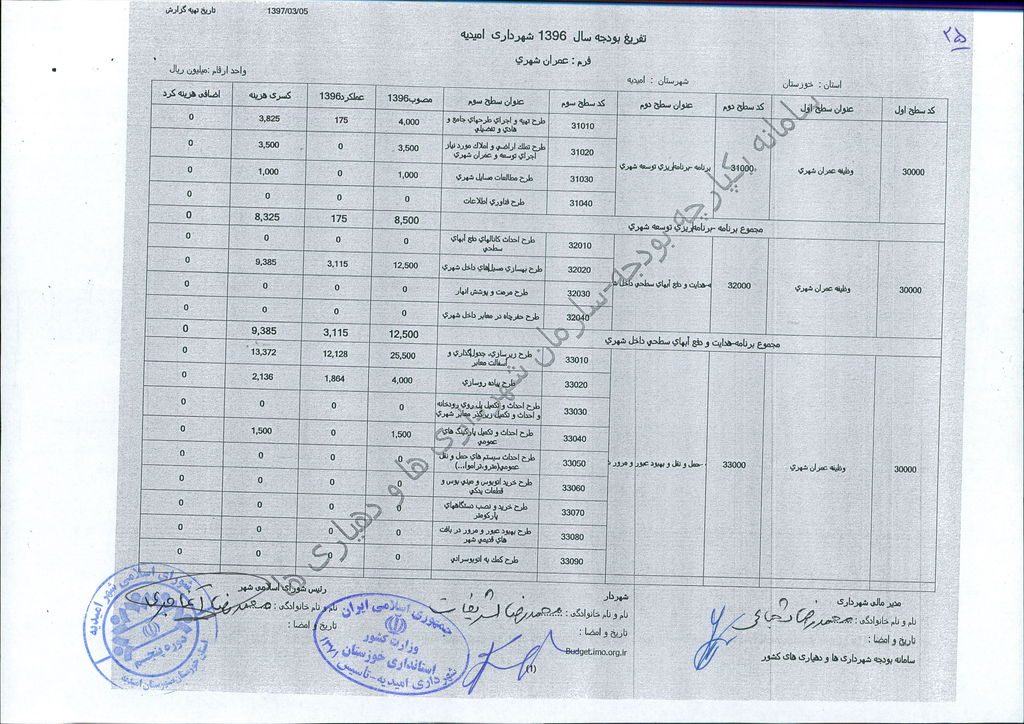 تاریخ تهیه گزارش 1397/03/05
۲۵
تفریغ بودجه سال 1396 شهرداری امیدیه
فرم : عمران شهري
استان : خوزستان شهرستان : امیدیه واحد ارقام :میلیون ریال
کد سطح اول عنوان سطح اول کد سطح دوم عنوان سطح دوم کد سطح سوم عنوان سطح سوم مصوب1396 عملکرد1396 کسری هزینه اضافی هزینه کرد
30000 وظیفه عمران شهري 31000 برنامه -برنامه‌ریزي توسعه شهري
31010 طرح تهیه و اجراي طرحهاي جامع و هادي و تفصیلي 4,000 175 3,825 0
31020 طرح تملك اراضي و املاك مورد نیاز اجراي توسعه و عمران شهري 3,500 0 3,500 0
31030 طرح مطالعات مسایل شهري 1,000 0 1,000 0
31040 طرح فناوري اطلاعات 0 0 0 0
مجموع برنامه -برنامه‌ریزي توسعه شهري 8,500 175 8,325 0
30000 وظیفه عمران شهري 32000 -هدایت و دفع آبهاي سطحي داخل ش
32010 طرح احداث کانالهاي دفع آبهاي سطحي 0 0 0 0
32020 طرح بهسازي مسیل‌هاي داخل شهري 12,500 3,115 9,385 0
32030 طرح مرمت و پوشش انهار 0 0 0 0
32040 طرح حفرچاه در معابر داخل شهري 0 0 0 0
مجموع برنامه-هدایت و دفع آبهاي سطحي داخل شهري 12,500 3,115 9,385 0
30000 وظیفه عمران شهري 33000 -حمل و نقل و بهبود عبور و مرور
33010 طرح زیرسازي، جدول‌گذاري و آسفالت معابر 25,500 12,128 13,372 0
33020 طرح پیاده روسازي 4,000 1,864 2,136 0
33030 طرح احداث و تکمیل پل روي رودخانه و احداث و تکمیل زیرگذر معابر شهري 0 0 0 0
33040 طرح احداث و تکمیل پارکینگ هاي عمومي 1,500 0 1,500 0
33050 طرح احداث سیستم هاي حمل و نقل عمومي(مترو،تراموا،...) 0 0 0 0
33060 طرح خرید اتوبوس و میني بوس و قطعات یدکي 0 0 0 0
33070 طرح خرید و نصب دستگاههاي پارکومتر 0 0 0 0
33080 طرح بهبود عبور و مرور در بافت هاي قدیمي شهر 0 0 0 0
33090 طرح کمك به اتوبوسراني 0 0 0 0
سامانه یکپارچه بودجه-سازمان شهرداری ها و دهیاری ها
مدیر مالی شهرداری
نام و نام خانوادگی :
تاریخ و امضا :
سامانه بودجه شهرداری ها و دهیاری های کشور
شهردار
نام و نام خانوادگی : محمدرضا شریفات
تاریخ و امضا :
Budget.imo.org.ir
(1)
رئیس شورای اسلامی شهر
نام و نام خانوادگی :
تاریخ و امضا :
جمهوری اسلامی ایران
وزارت کشور
استانداری خوزستان
شهرداری امیدیه-تاسیس ۱۳۷۱
شورای اسلامی شهر امیدیه
دوره پنجم